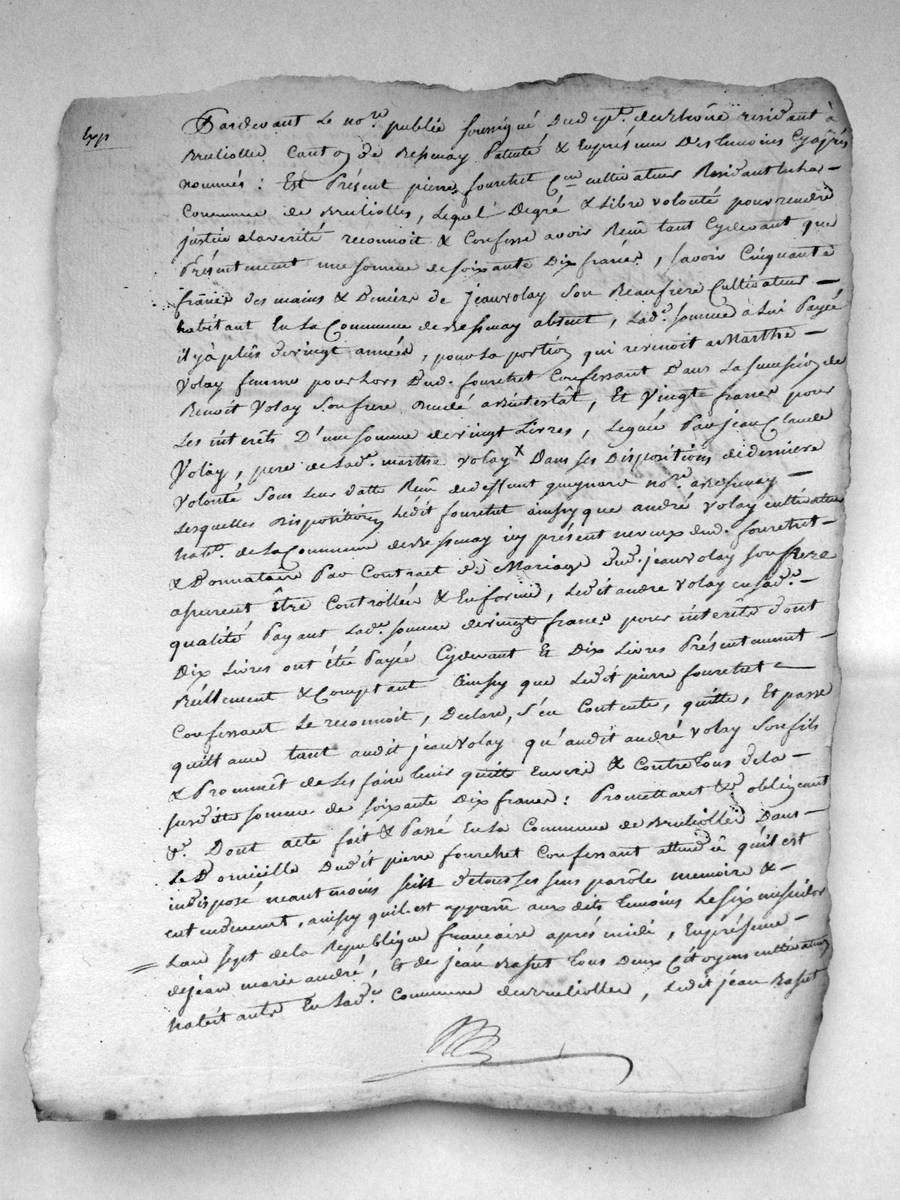 exp
Pardevant Le no.re publié soussigné Dud.ept. du Rhône residant à
Brulliolle Canton de Bessenay Patenté & En présence Des temoins Cy après
nommés : Est Présent pierre fouretset C.en cultivateur Residant
Commune de Brullolles, Lequel Degré & Libre volonté pour rendre
justice alaverité reconnoit & Confesse avoir Reçû tant Cydevant que
Présentement une somme de soixante Dix francs, savoir Cinquante
francs des mains & Deniers de Jean volay Son Beaufrere Cultivateur
habitant En La Commune de Bessenay absent, Lad.e somme à Lui Payée
il y à plus de vingt années, pour La portion qui revenoit a Marthe
Volay femme pour Lors Dud. fouretset Confessant Dans La succession de
Benoit Volay Son frere décédé abintestât, Et Vingt francs pour
Les interêts D'une somme de vingt Livres, Leguée Par jean Claude
Volay, pere de Lad.e marthe volay x Dans ses Dispositions de derniere
Volonté Sous Leur datte Reçû de deffunt guignard no.re a Bessenay
Lesquelles Dispositions Ledit fouretset ainsy que andré volay cultivateur
hab.t de La Commune de Bessenay icy présent neveux dud. fouretset
& Donnataire Par Contract de Mariage dud. jean volay son Pere
assurent être Controllées & En forme, Ledit andre volay en sad.e
qualité Payant Lad.e somme de vingt francs pour interêts dont
Dix Livres ont été Payée Cydevant Et Dix Livres Présentement
Réellement & Comptant ainsy que Ledit pierre fouretset
Confessant Le reconnoit, Declare, s'en Contente, quitte, Et passe
quittance tant audit jean volay qu'audit andré volay Son fils
& Prommêt de Les faire tenir quitte Envers & Contre tous de la
susditte somme de soixante Dix francs : Promettant &c. obligeant
&c. Dont acte fait & Passé En La Commune de Brullolles Dans
Le Domicille Dudit pierre fouretset Confessant attendu qu'il est
indisposé neantmoins sein de tous ses sens parôle memoire &
entendement, ainsy qu'il est apparu aux dits temoins Le six messidor
L'an sept de la Republique française après midi, En présence
de jean marie andré, Et de jean Basset tous Deux Citoyens cultivateurs
habitants En Lad.e Commune de Brullolles, Ledit jean Basset